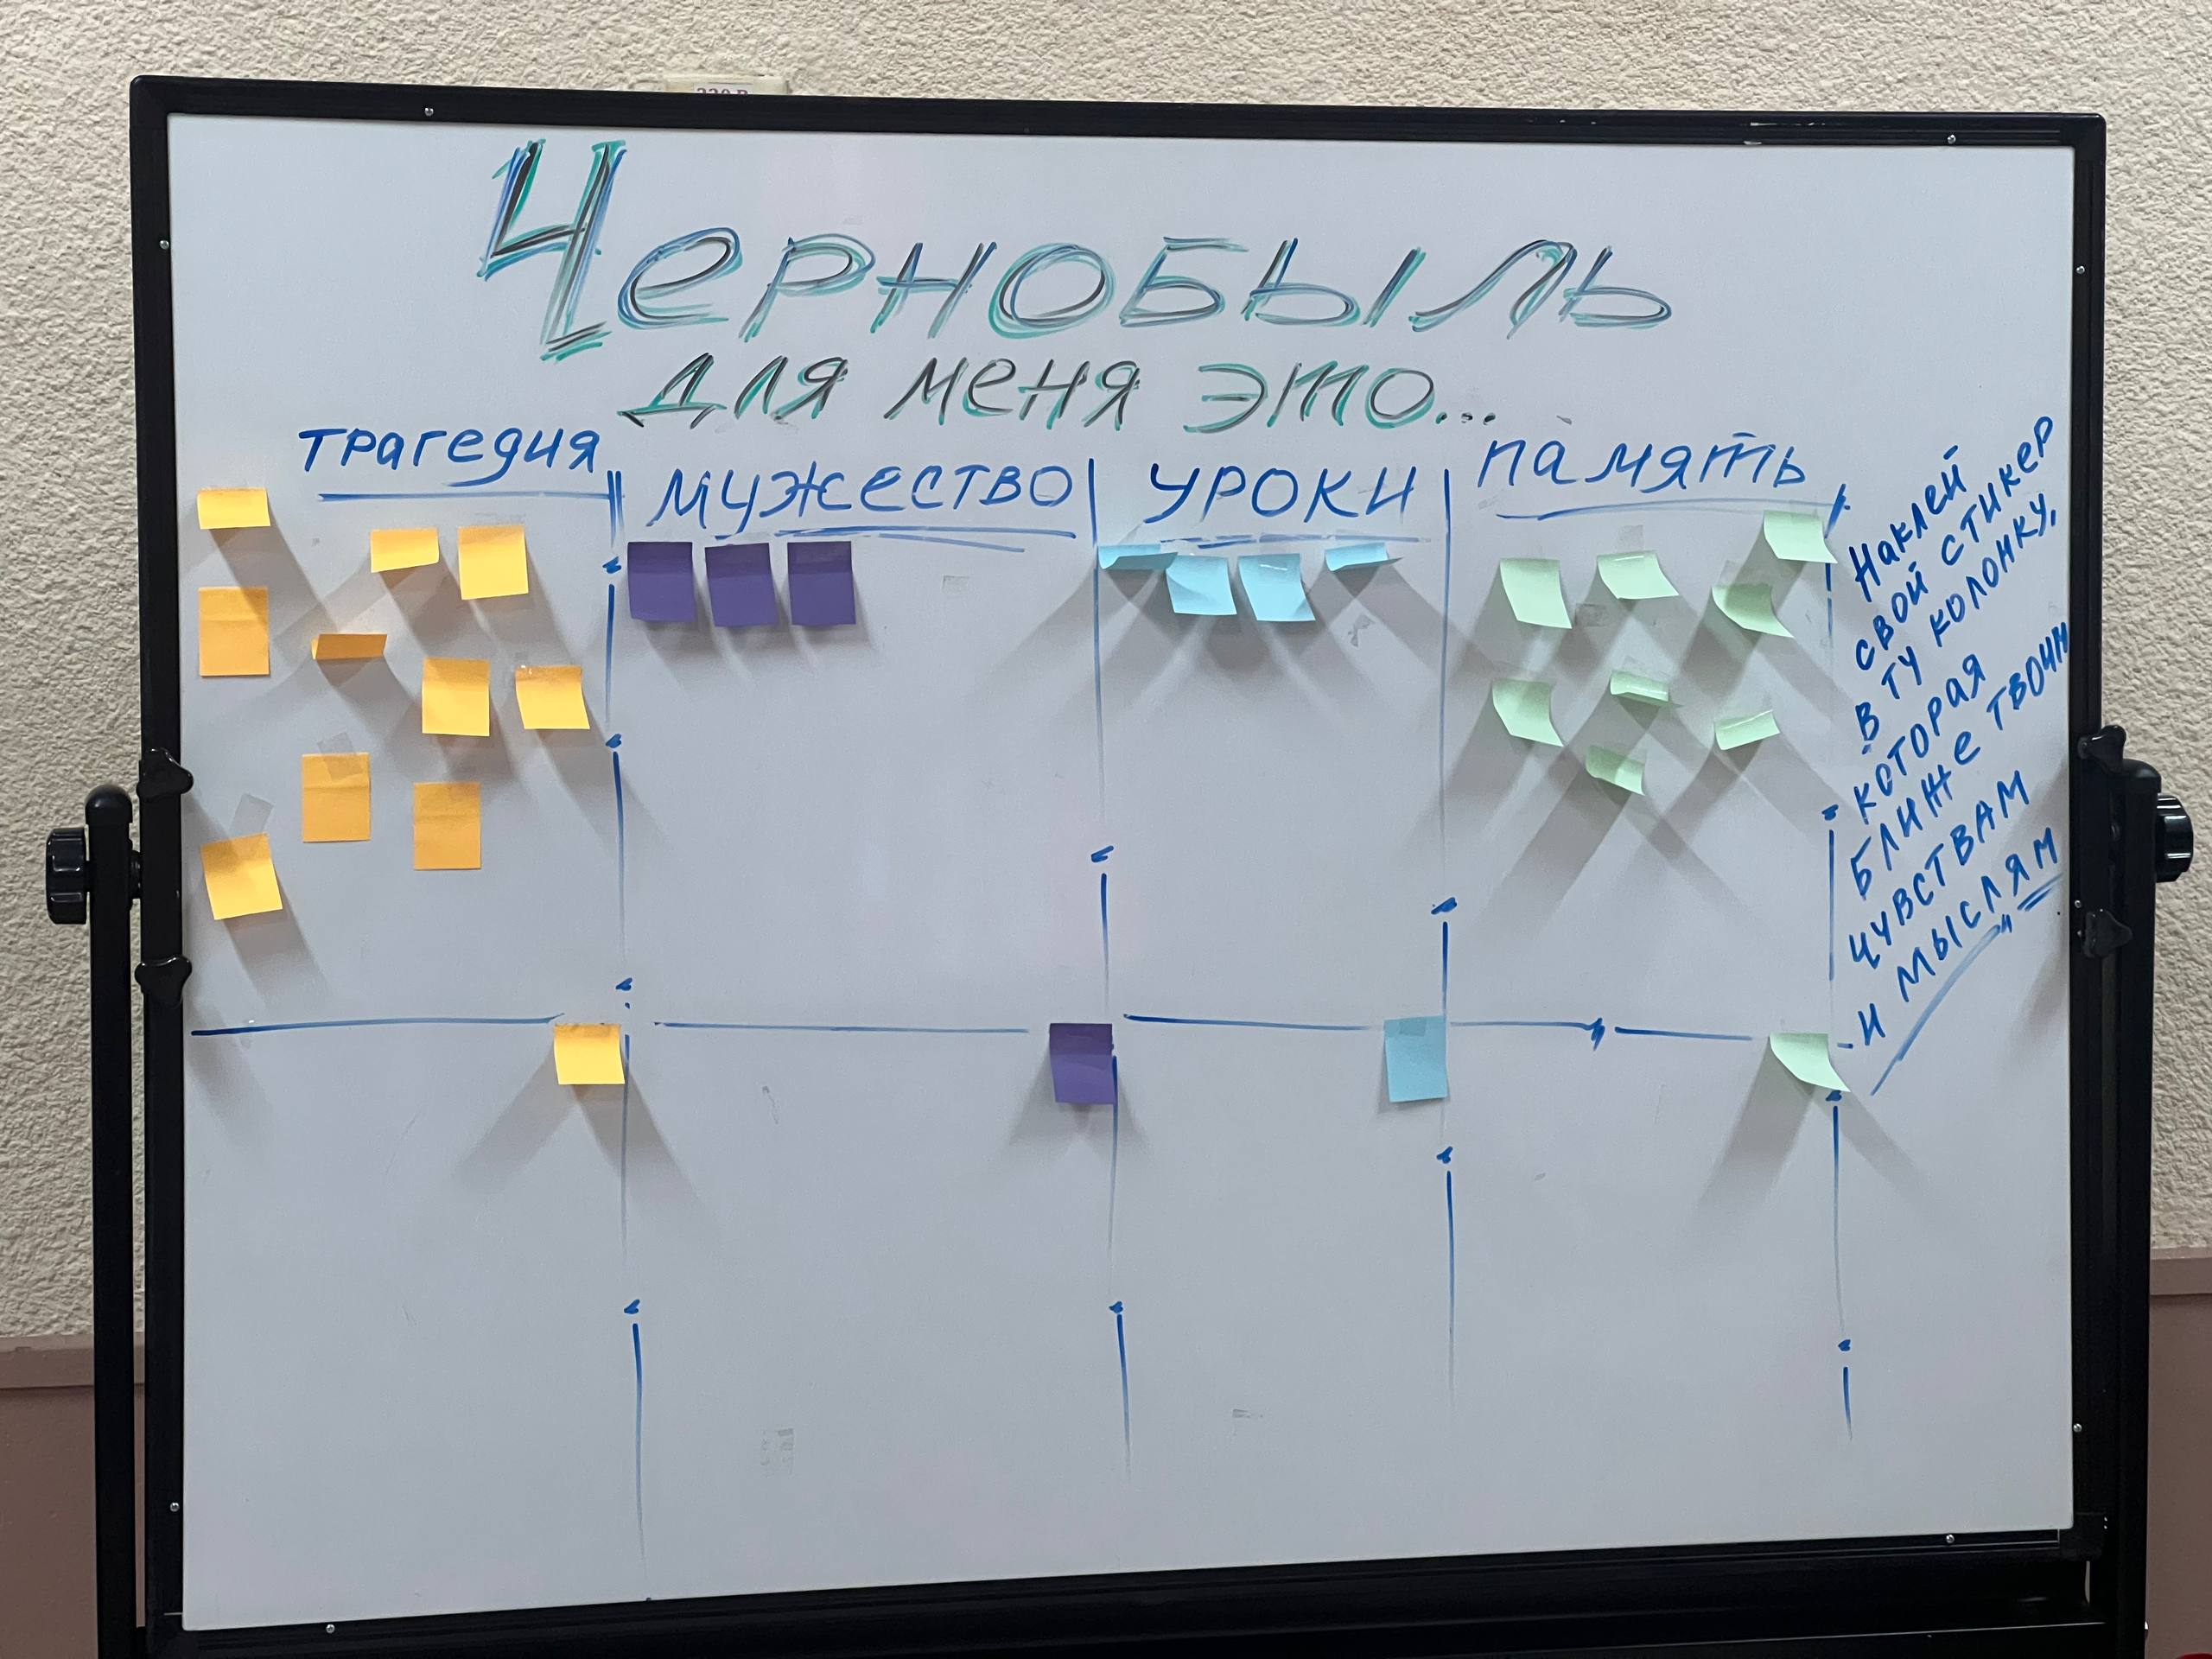 Чернобыль
для меня это...
трагедия
мужество
уроки
память
Наклей
свой стикер
в ту колонку,
которая
ближе твоим
чувствам
и мыслям